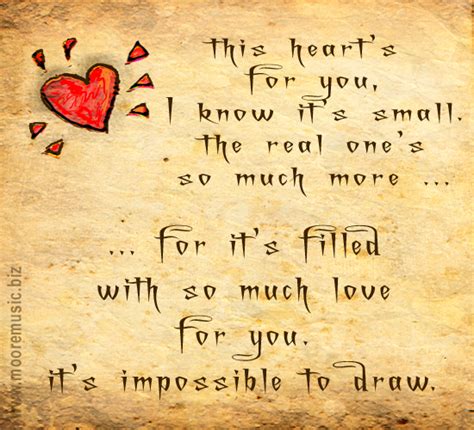 this heart's
for you,
I know it's small.
the real one's
so much more ...
... for it's filled
with so much love
for you.
it's impossible to draw.
www.mooremusic.biz